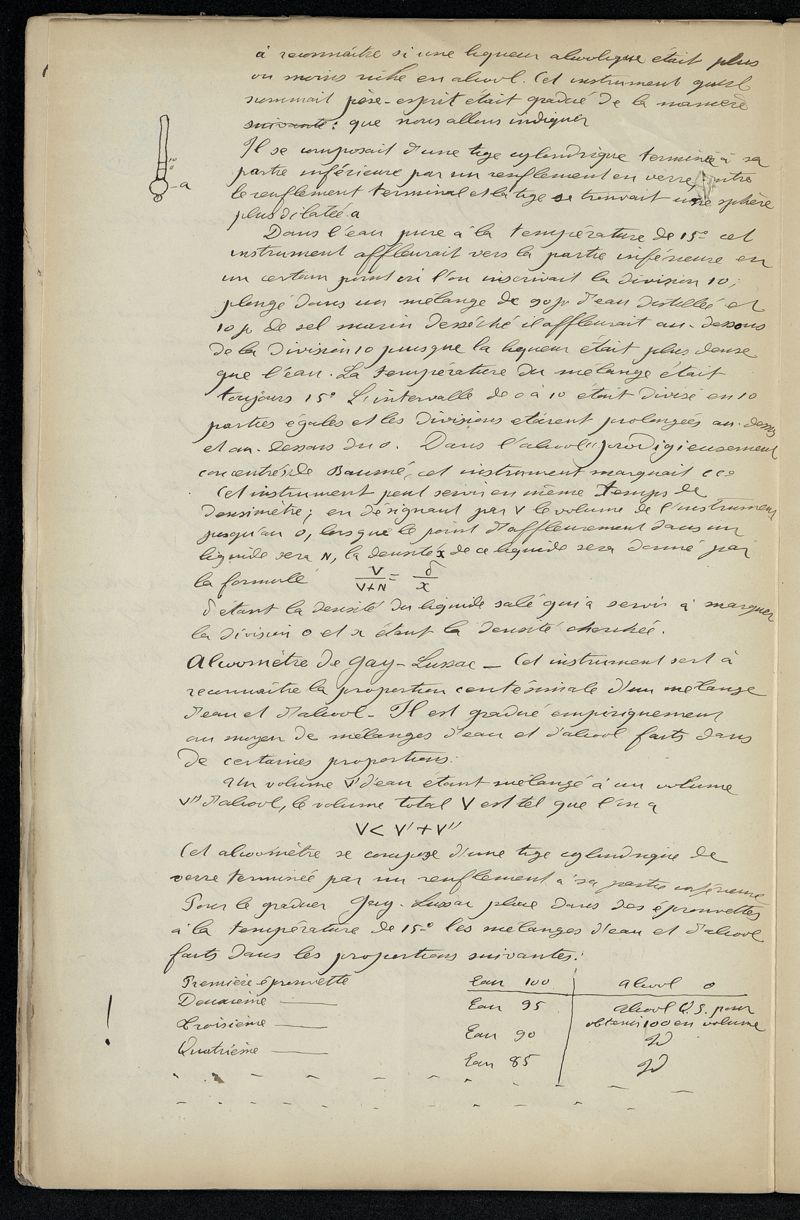 à reconnaître si une liqueur alcoolique était plus
ou moins riche en alcool. Cet instrument qu'il
nommait pèse-esprit était gradué de la manière
suivante: que nous allons indiquer
Il se composait d'une tige cylindrique terminée à sa
partie inférieure par un renflement en verre, entre
le renflement terminal et la tige se trouvait une sphère
plus dilatée a
10
0
a
Dans l'eau pure à la température de 15° cet
instrument affleurait vers la partie inférieure en
un certain point où l'on inscrivait la division 10;
plongé dans un mélange de 90 p d'eau distillée et
10 p de sel marin desséché il affleurait au-dessous
de la division 10 puisque la liqueur était plus dense
que l'eau. La température du mélange était
toujours 15° L'intervalle de 0 à 10 était divisé en 10
parties égales et les divisions étaient prolongées au-dessus
et au-dessous du 0. Dans l'alcool prodigieusement
concentré de Baumé, cet instrument marquait
Cet instrument peut servir en même temps de
densimètre; en désignant par V le volume de l'instrument
jusqu'au 0, lorsque le point d'affleurement dans un
liquide sera N, la densité x de ce liquide sera donné par
la formule V/V+N = δ/x
δ étant la densité du liquide salé qui a servi à marquer
la division 0 et x étant la densité cherchée.
Alcoomètre de Gay-Lussac — Cet instrument sert à
reconnaître la proportion centésimale d'un mélange
d'eau et d'alcool - Il est gradué empiriquement
au moyen de mélanges d'eau et d'alcool faits dans
de certaines proportions.
Un volume V' d'eau étant mélangé à un volume
V'' d'alcool, le volume total V est tel que l'on a
V < V' + V''
Cet alcoomètre se compose d'une tige cylindrique de
verre terminée par un renflement à sa partie inférieure
Pour le graduer Gay-Lussac place dans des éprouvettes
à la température de 15° les mélanges d'eau et d'alcool
faits dans les proportions suivantes:
Première éprouvette Eau 100 alcool 0
Deuxième — Eau 95 alcool Q.S. pour
obtenir 100 en volume
Troisième — Eau 90 id
Quatrième — Eau 85 id
!